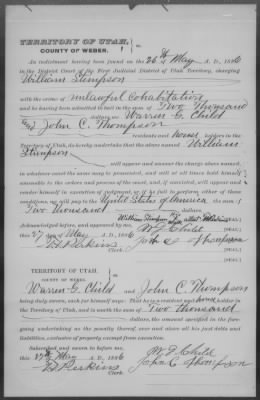 TERRITORY OF UTAH,
COUNTY OF WEBER.
An indictment having been found on the 26th May A. D., 1886
in the District Court of the First Judicial District of Utah Territory, charging
William Stimpson
with the crime of unlawful Cohabitation
and he having been admitted to bail in the sum of Two Thousand
dollars, we Warren G. Child
and John C. Thompson
residents and house holders in the
Territory of Utah, do hereby undertake that the above named William
Stimpson
will appear and answer the charge above named,
in whatever court the same may be prosecuted, and will at all times hold himself
amenable to the orders and process of the court, and, if convicted, will appear and
render himself in execution of judgment, or if he fail to perform either of these
conditions, we will pay to the United States of America the sum of
Two thousand
dollars.
William Stimpson
Acknowledged before me, and approved by me,
this 27 day May A. D., 1886
Perkins
Clerk.
W G Child
John C Thompson
[SEAL]
[SEAL]
[SEAL]
TERRITORY OF UTAH,
COUNTY OF
Warren G. Child and John C Thompson
being duly sworn, each for himself says: That he is a resident and house holder in the
Territory of Utah, and is worth the sum of Two thousand
dollars, the amount specified in the foregoing
undertaking as the penalty thereof, over and above all his just debts and
liabilities, exclusive of property exempt from execution.
Subscribed and sworn to before me,
this 27th May A. D., 1886
Perkins
Clerk.
W G Child
John C Thompson